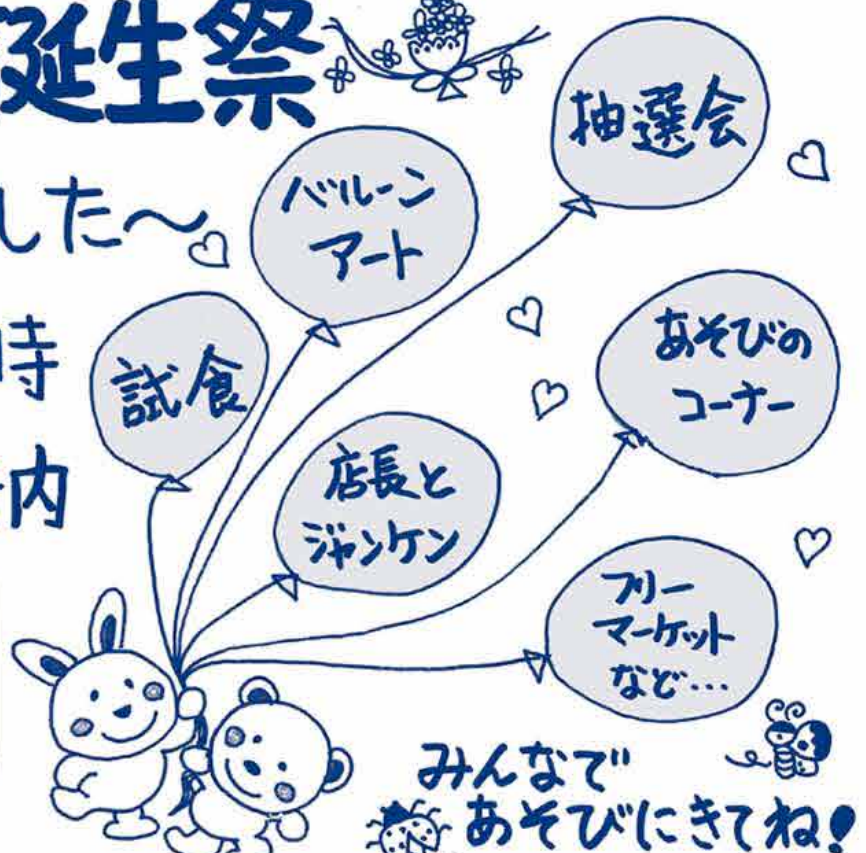 誕生祭
した～
時
内
抽選会
バルーン
アート
試食
あそびの
コーナー
店長と
ジャンケン
フリー
マーケット
など…
みんなで
あそびにきてね!